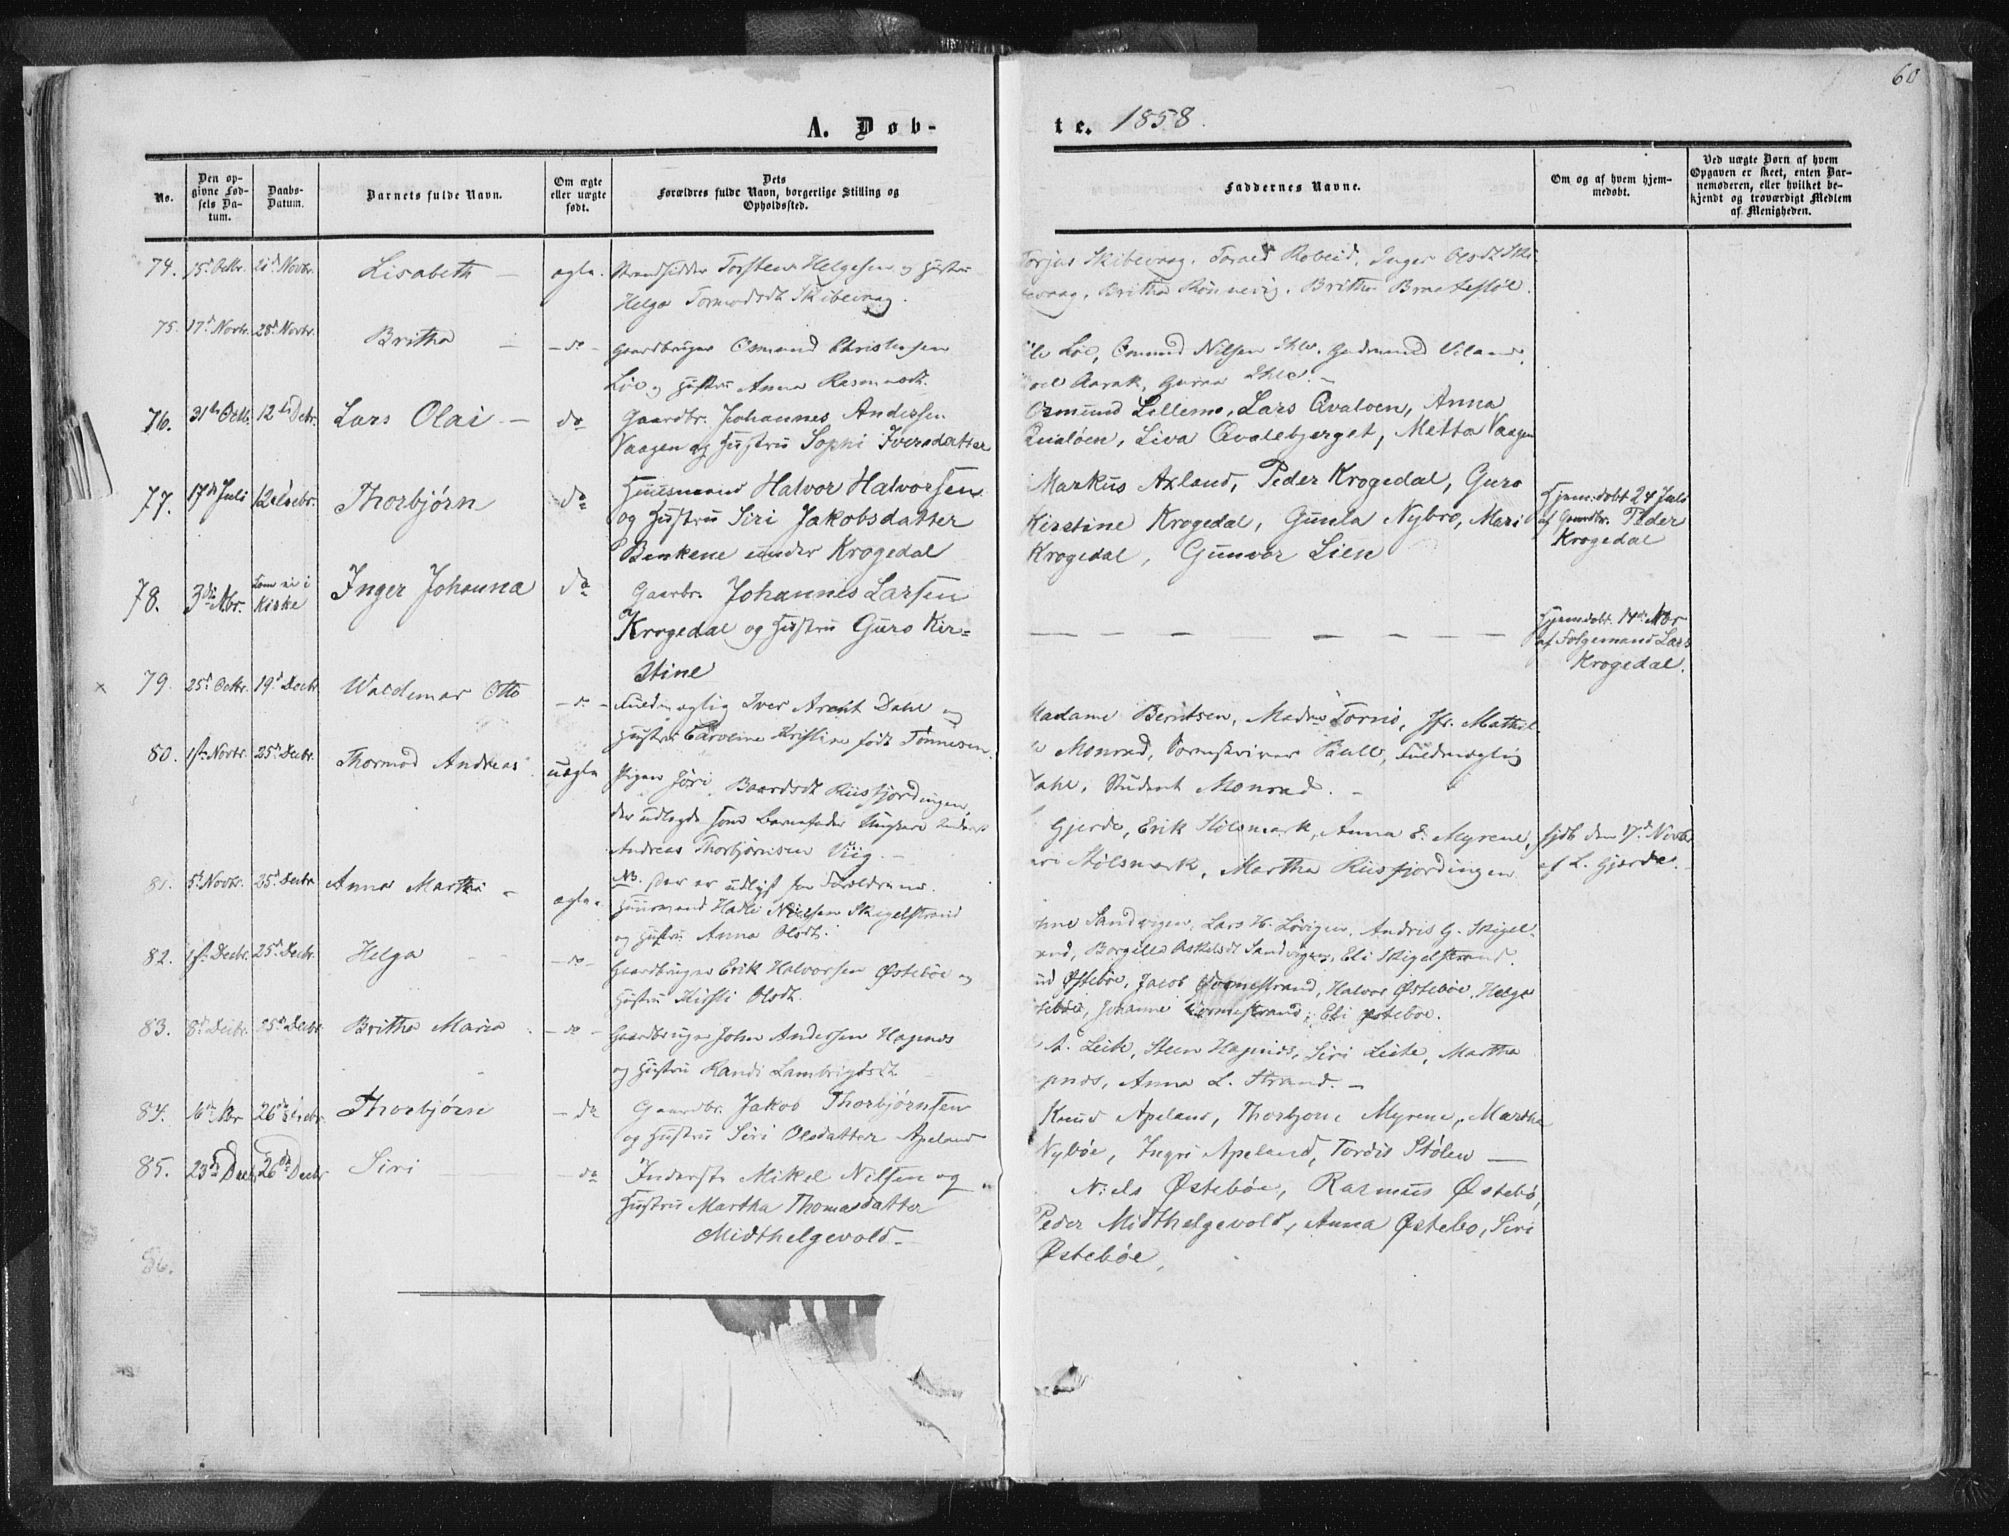 60
A. Døb-
te. 1858.
No.
Den op-
givne Fød-
sels Da-
tum.
Daabs-
Datum.
Barnets fulde Navn.
Om ægte
eller uægte
født.
Dets
Forældres fulde Navn, borgerlige Stilling og
Opholdssted.
Faddernes Navne.
Om og af hvem hjem-
medøbt.
Ved uægte Børn af hvem
Opgaven er skeet, enten Bar-
nemoderen, eller hvilket be-
kjendt og troværdigt Medlem
af Menigheden.
74. 15d Octbr. 21d Novbr. Lisabeth - ægte. Strandsidder Torsten Helgesen og Hustru
Helga Tormodsdt Skibevaag.
Torjus Skibevaag. Inger Olsdt Ski
bevaag, Britha Rönnevig. Britha Braatestöl.
75. 17d Novbr. 28d Novbr. Britha - do - Gaardbruger Osmund Christensen
Löe og Hustru Anna Rasmusdt.
Löe, Osmund Nilsen Ihle. Gudmund Viland,
Aarak, Guroe Ihle. -
76. 31te Octb. 12te Debr. Lars Olai - do Gaardbr. Johannes Andersen
Vaagen og Hustru Sophi Iversdatter
Osmund Lillemo, Lars Qvaloen, Anna
Qvaløen, Liva Qvalebjerget, Metta Vaagen
77. 17de Juli 12te Debr. Thorbjørn do Huusmand Halvor Halvorsen
og Hustru Siri Jakobsdatter
Benkene under Krogedal
Markus Axland, Peder Krogedal, Guro
Kirstine Krogedal, Gunla Nybro, Mari
Krogedal, Gunvor Lien
Hjemdøbt 24 Juli
af Gaardbr. Peder
Krogedal
78. 3die Nbr. Kom ei i
Kirke Inger Johanna do Gaarbr. Johannes Larsen
Krogedal og Hustru Guro Kir=
stine
Hjemdøbt 14de Nbr
af Følgemand Lars
Krogedal.
79. 25d Octbr. 19d Decbr. Waldemar Otto - do - Fuldmægtig Iver Arent Dahl og
Hustru Caroline Kristine født Tönnesen.
Madame Berntsen, Madm Tornö, Jfr. Mathil
de Monrad, Sorenskriver Bull, Fuldmægtig
Dahl, Student Monrad. -
80. 1ste Novbr. 25d Decbr. Thormod Andreas uægte Pigen Jöri Baardsdt Riisfjordingen,
der udlagde som Barnefader Ungkarl
Andreas Thorbjørnsen Viig. -
NB. Der er udlyst for Forældrene.
Gjerde, Erik Stölsmark, Anna E. Myrene,
Stölsmark, Martha Riisfjordingen
hjdb den 17d Novbr
af L. Gjerde.
81. 5d Novbr. 25d Decbr. Anna Martha - ægte. Huusmand Nielsen Skigelstrand
og Hustru Anna Olsdt.
Sandvigen, Lars H. Lövigen, Andris G. Skigel-
strand, Borgilla Askilsdt Sandvigen, Eli Skigelstrand.
82. 1ste Decbr. 25d Decbr. Helga - - - do - Gaardbruger Erik Halvorsen Østebøe og
Hustru Kirsti Olsdt.
Østebøe, Jacob Qvamestrand, Halvor Østebøe, Helge
Østebøe, Johanne Qvamestrand, Eli Østeboe.
83. 8d Decbr. 25d Decbr. Britha Maria - do - Gaardbruger John Andersen Hapnes
og Hustru Randi Lambrigtsdt
A. Leite, Steen Hapnes, Siri Leite, Martha
Hapnes, Anna L. Strand. -
84. 16de Nbr 26de Debr. Thorbjörn - do Gaardbr. Jakob Thorbjörnsen
og Hustru Siri Olsdatter Apeland
Knud Apeland, Thorbjorn Myrene, Martha
Nybøe, Ingri Apeland, Tordis Stölen -
85. 23de Decbr 26de Decbr Siri - do Inderste Mikel Nilsen og
Hustru Martha Thomasdatter
Midthelgevold -
Niels Østebøe, Rasmus Østebö,
Peder Midthelgevold, Anna Østebo, Siri
Østebøe,
86.